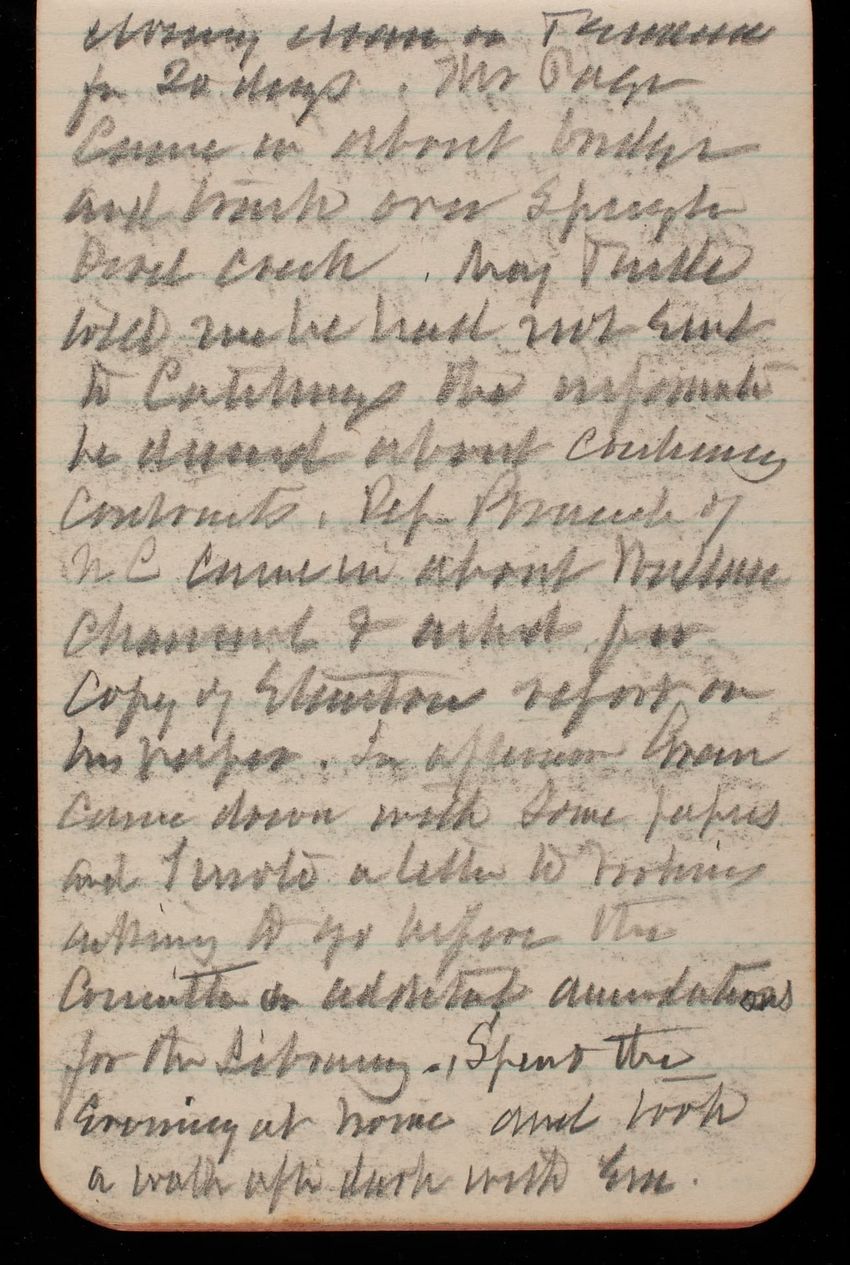 closing down on
for 20 days. Mr Page
Came in about bridge
and track over Spuyten
Devel Creek. Maj Tuttle
told me he had not sent
to the informatn
he desired about continuing
Contracts. Rep Branch of
N C came in about
Channel & asked for
Copy of report on
his paper. In afternoon Green
came down with some papers
and I wrote a letter to
asking to go before the
Comitte on additnl amendations
for the Library. Spent the
Evening at home and took
a walk after dark with Em.